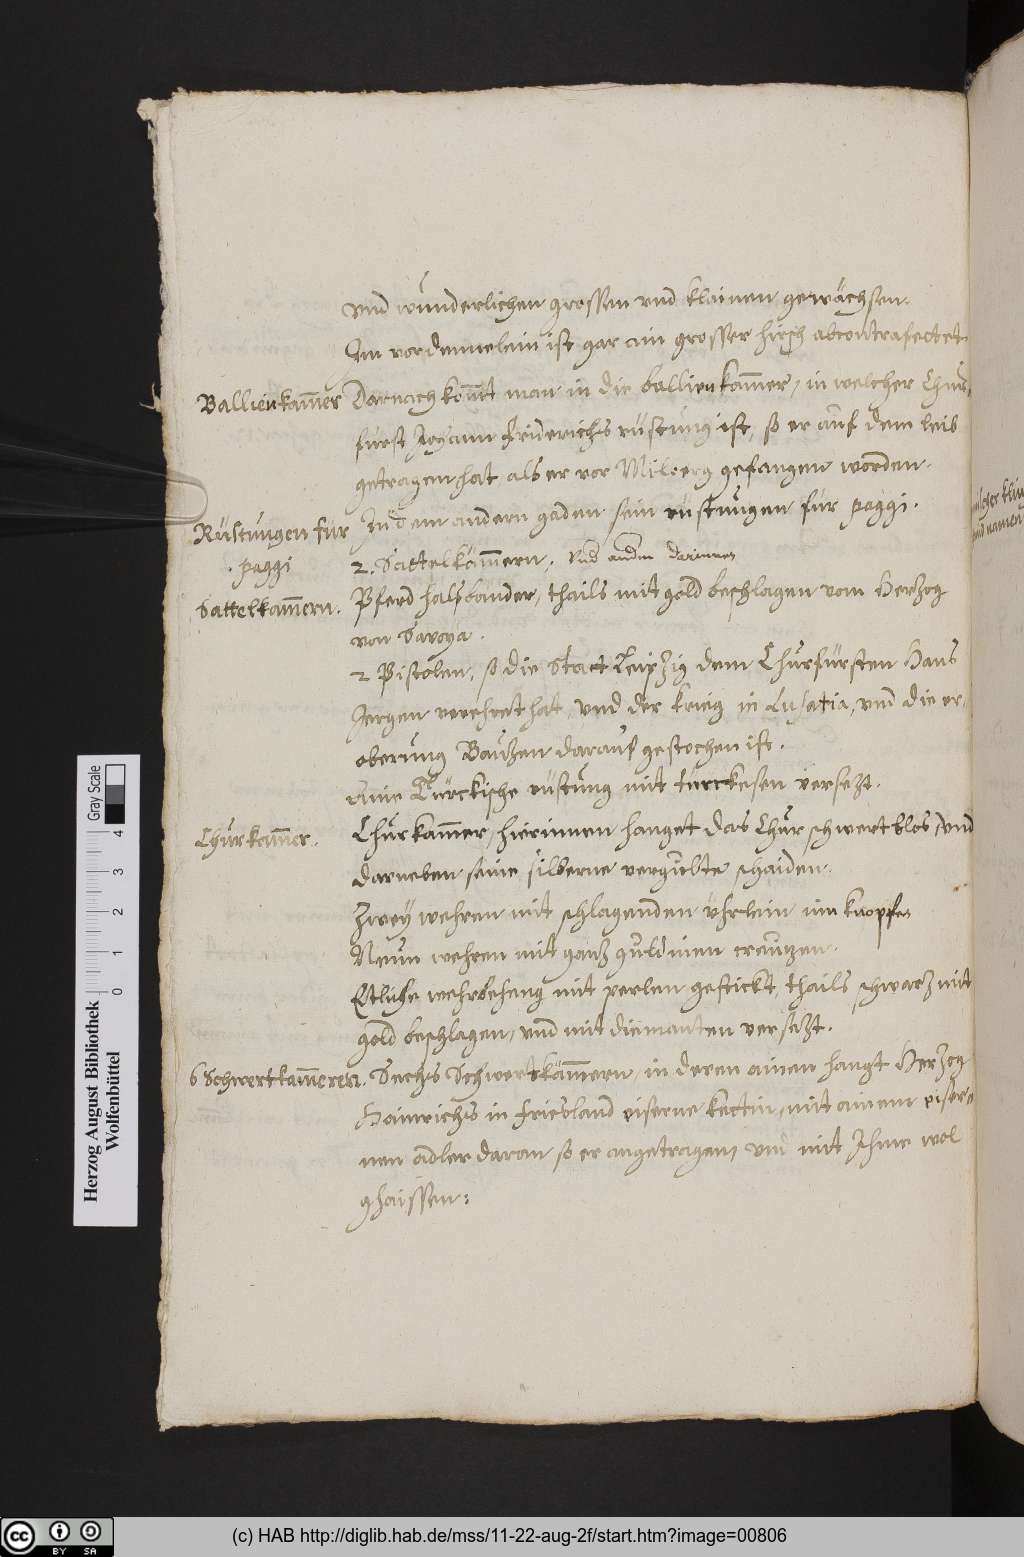 vnd wunderlichen grossen vnd klainen gewächsen.
Im vordennelein ist gar ain grosser hirsch abcontrafectet
Ballienkam̄er Darnach kom̄t man in die ballienkam̄er, in welcher Chur-
fürst Johann Friderichs rüstung ist, so er auf dem leib
getragen hat als er vor Milberg gefangen worden.
Rüstungen für In dem andern gaden sein rüstungen für paggi.
paggi 2. Sattelkam̄ern. vnd darinnen
Sattelkam̄ern. Pferd halsbänder, thails mit gold beschlagen vom Herzog
von Savoya.
2 Pistolen, so die Statt Leipzig dem Churfürsten Hans
Jergen verehret hat, vnd der krieg in Lusatia, vnd die er-
oberung Bautzen darauf gestochen ist.
Aine Türckische rüstung mit turckesen versezt.
Churkam̄er. Churkam̄er, hierinnen hanget das Churschwert blos, vnd
darneben seine silberne vergulte schaiden.
Zwey wehren mit schlagenden vhrlein im knopfe
Neun wehren mit ganz guldinen creutzen.
Etliche wehrgeheng mit perlen gestickt, thails schwarz mit
gold beschlagen, vnd mit diemanten versezt.
6 Schwertkam̄eren. Sechs Schwertkam̄ern, in deren ainen hangt Herzog
Hainrichs in Friesland eiserne kettin, mit ainem eiser-
nen adler daran so er angetragen, vnd mit Ihme wol
ghaissen:
Herzog August Bibliothek
Wolfenbüttel
0 1 2 3 4
Gray Scale
cc BY SA
(c) HAB http://diglib.hab.de/mss/11-22-aug-2f/start.htm?image=00806